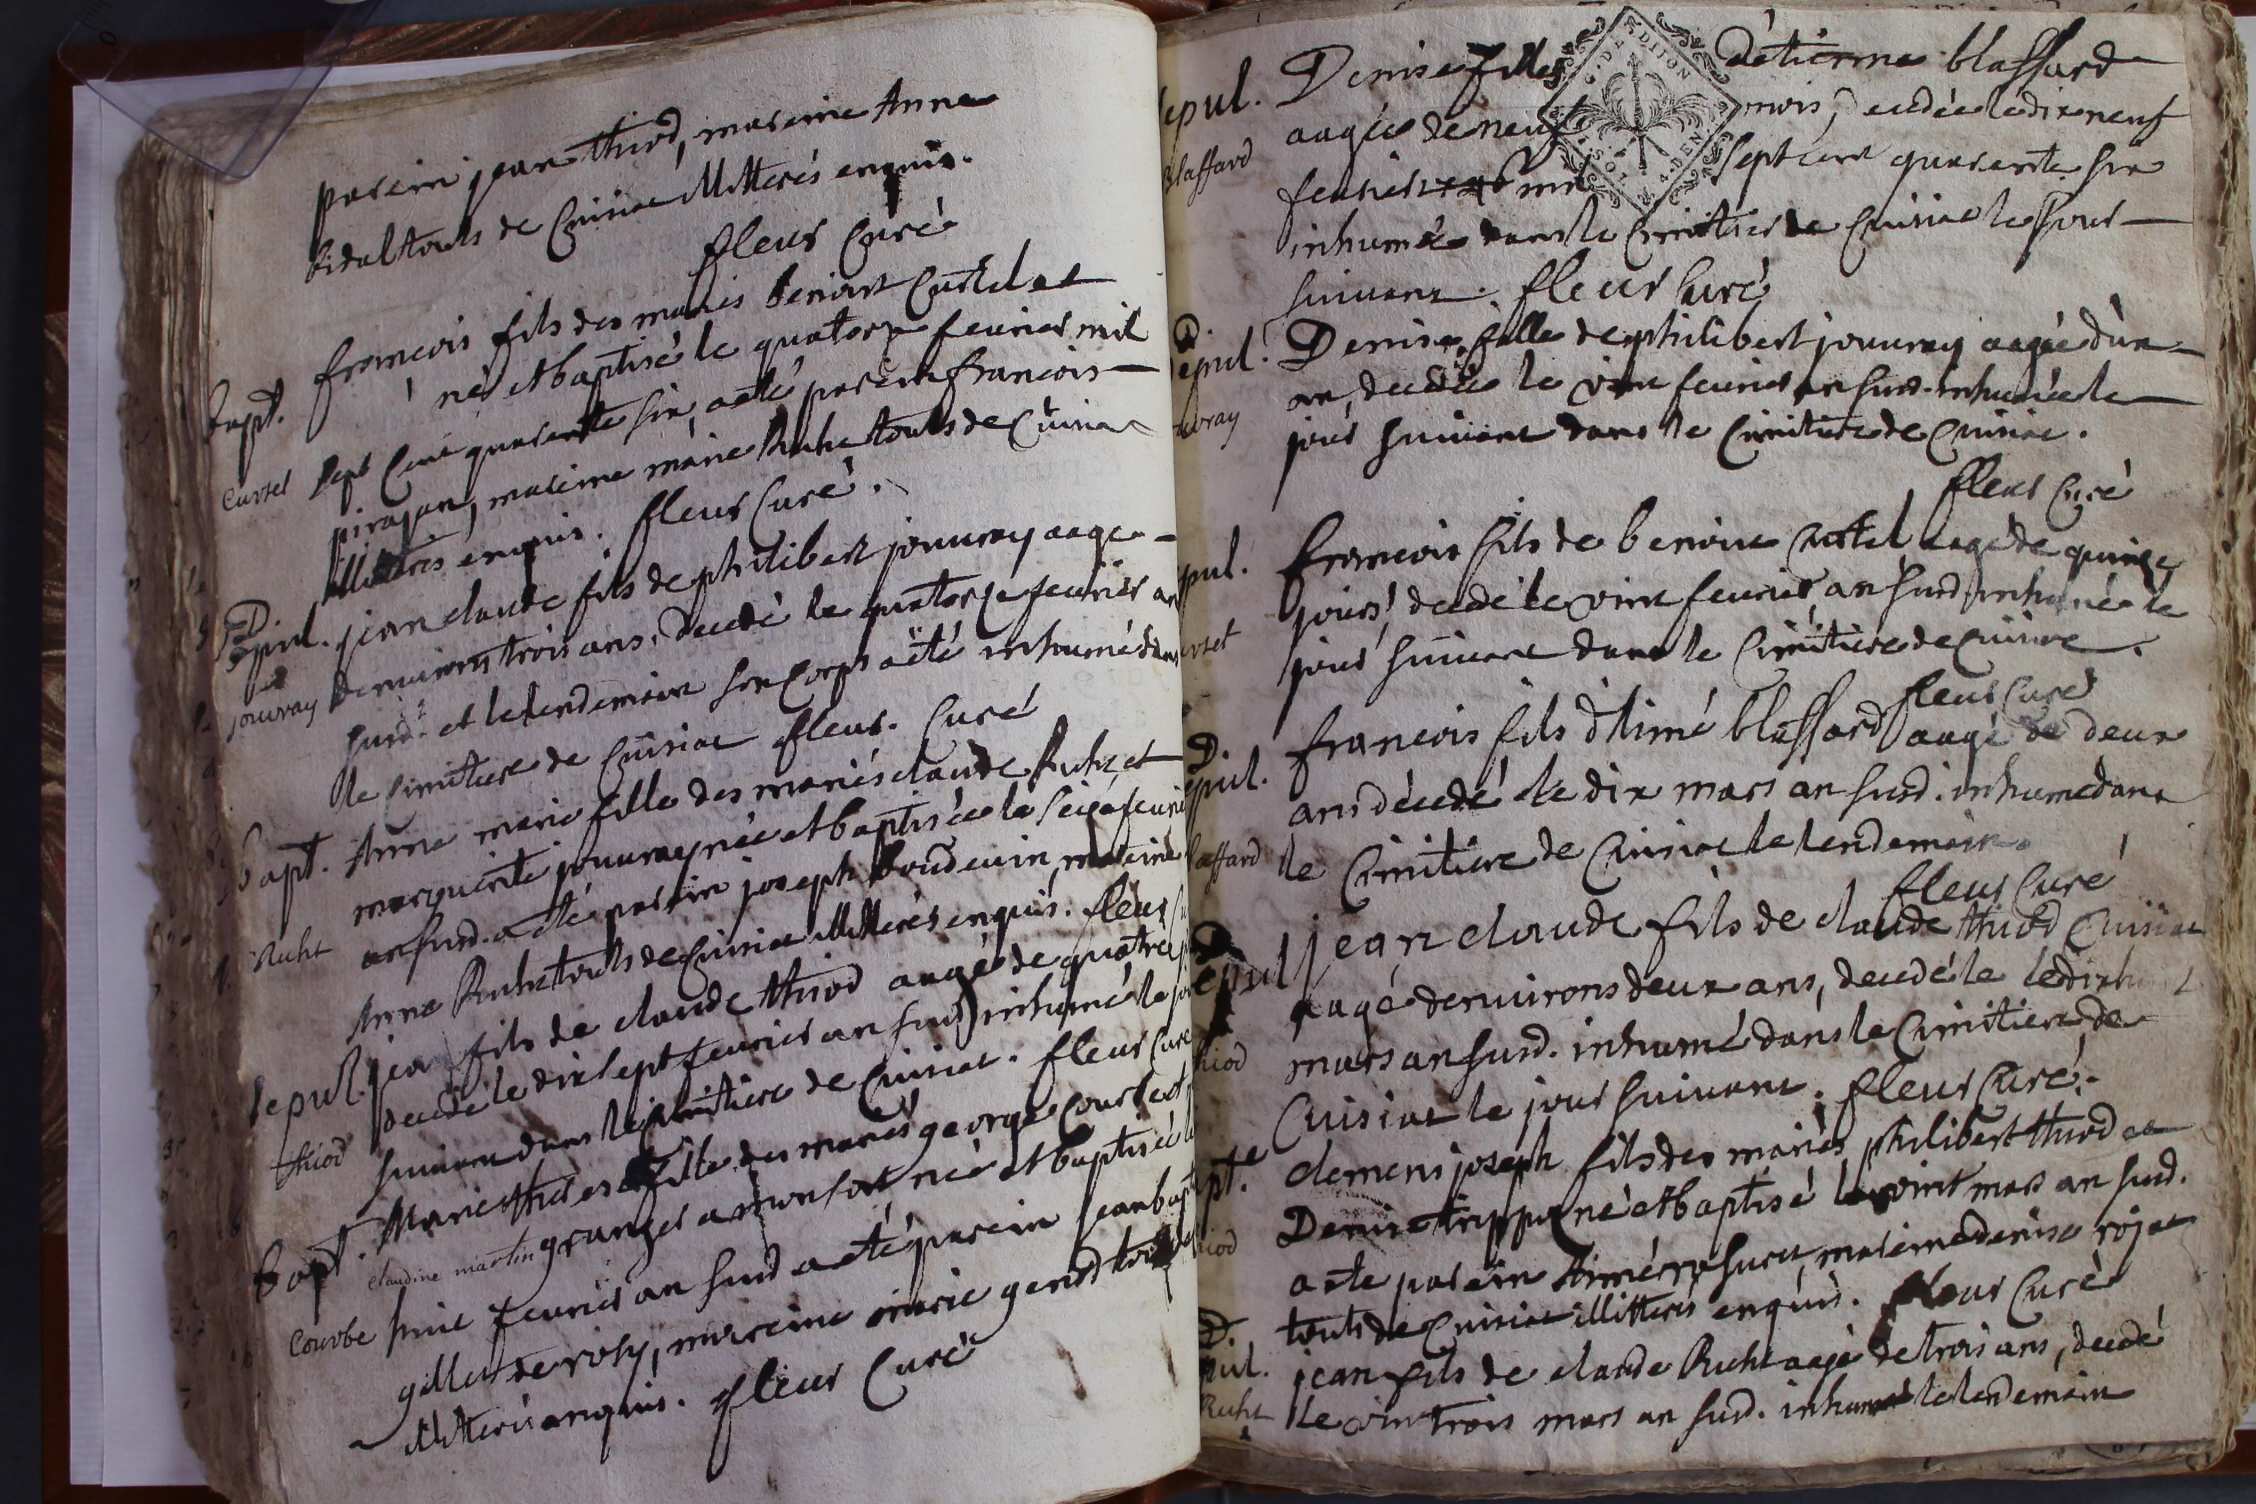 parein jean thiod, mareine Anne
vidal touts de Cuisiat illitterés enquis.
fleur Curé
bapt.
Curtet
francois fils des mariés benoit Curtel et
né et baptisé le quatorze feurier mil
sept Cent quarente six, a eté parein francois
pirajan, mareine marie Ruht touts de Cuisiat
illitterés enquis. fleur Curé.
D.
sepul.
jouvray
jean claude fils de philibert jouuray aagé
denuirons trois ans, decedé le quatorze feurier an
susd. et le lendemain son Corps a eté inhumé dans
le Cimitiere de Cuisiat fleur. Curé
bapt.
Ruht
Anne marie fille des mariés claude Ruht et
marguerite jouuray née et baptisée le seize feurier
an susd. a eté parein joseph boudeuin, mareine
Anne Ruht touts de Cuisiat illitterés enquis. fleur
sepul.
thiod
jean fils de claude thiod aagé de quatre
decedé le dix sept feurier an susd inhumé le jour
suiuant dans le Cimitiere de Cuisiat. fleur Curé
bapt.
Courbe
Marie therese fille des mariés george Courbe et
claudine martin granger a monfort née et baptisée le
huit feurier an susd a eté parein jean bapt
gillet de rosy, mareine marie genod touts
illitterés enquis. fleur Curé
sepul.
Blaffard
G. DE DIJON
SOL. 4. DEN
Denise fille d'étienne blaffard
aagée de neuf mois, decedée le dix neuf
feurier mil sept cent quarente six
inhumée dans le Cimitiere de Cuisiat le jour
suiuant. fleur Curé
D
sepul.
jouvray
Denise, fille de philibert jouuray aagée d'un
an, decedée le vint feurier an susd. inhumée le
jour suiuant dans le Cimitiere de Cuisiat.
fleur Curé
sepul.
Curtet
francois fils de benoit Curtel aagé de quinze
jours, decedé le vint feurier an susd inhumé le
jour suiuant dans le Cimitiere de Cuisiat.
fleur Curé
D.
sepul.
blaffard
francois fils d'Aimé blaffard aagé de deux
ans décedé le dix mars an susd. inhumé dans
le Cimitiere de Cuisiat le lendemain.
fleur Curé
D
sepul
thiod
jean claude fils de claude thiod Cuisiat
aagé denuirons deux ans, decedé le le dix huit
mars an susd. inhumé dans le Cimitiere de
Cuisiat le jour suiuant. fleur Curé.
bapt.
thiod
clemens joseph fils des mariés philibert thiod et
Denise trippoz né et baptisé le vint mars an susd.
a eté parein Aimé mareine denise rojat
touts de Cuisiat illitterés enquis. fleur Curé
D.
sepul.
Ruht
jean fils de claude Ruht aagé de trois ans, decedé
le vint trois mars an susd. inhumé le lendemain